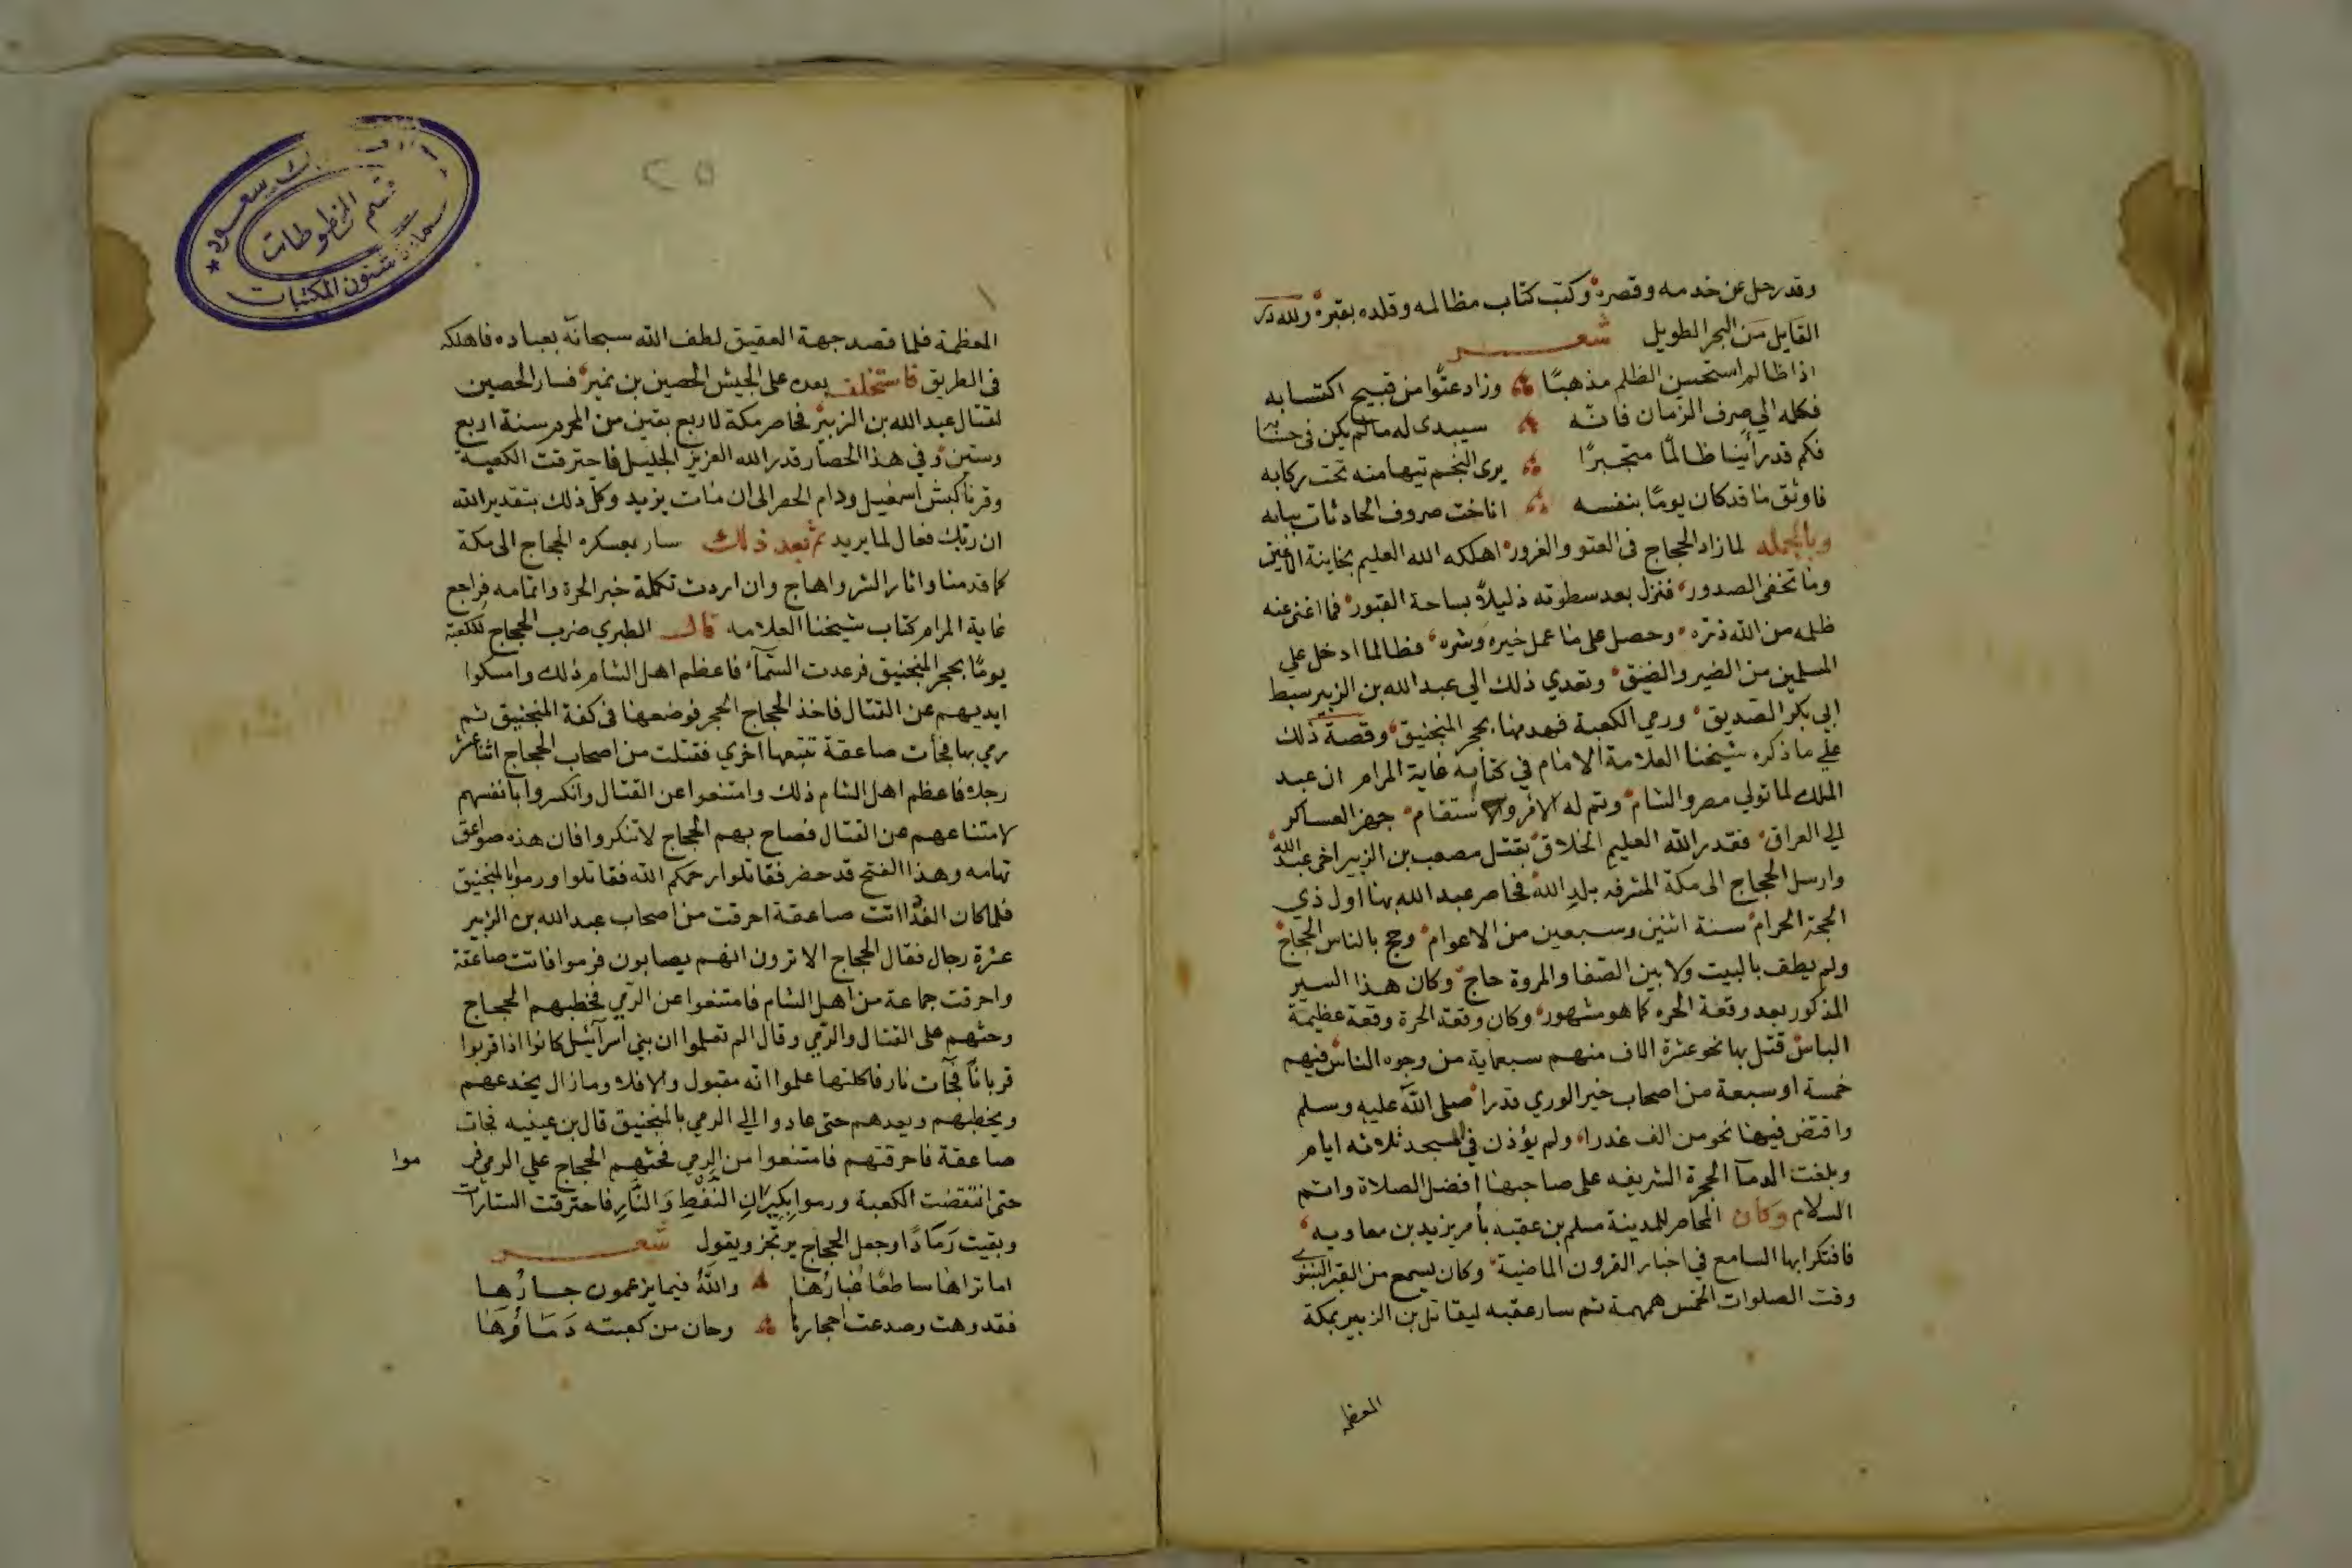 وقد رحل عن خدمه وقصره وكتب كتاب مظالمه وقلده بقبره ولله در
القايل من البحر الطويل شعر
اذا ظالم استحسن الظلم مذهبًا وزاد عتوًا من قبيح اكتسابه
فكله الي صرف الزمان فانه سيبدى له مالم يكن فى حسابه
فكم قد رأينا ظالمًا متجبرًا يرى النجم تيها منه تحت ركابه
فاوثق ما قد كان يومًا بنفسه اناخت صروف الحادثات ببابه
وبالجمله لما زاد الحجاج فى العتو والغرور اهلكه الله العليم بخاينة الاعين
وما تخفى الصدور فنزل بعد سطوته ذليلاً بساحة القبور فما اغنى عنه
ظلمه من الله ذره وحصل على ما عمل خيره وشره فطالما ادخل علي
المسلمين من الضير والضيق وتعدي ذلك الي عبد الله بن الزبير سبط
ابي بكر الصديق ورمي الكعبة فهدمها بحجر المنجنيق وقصة ذلك
علي ما ذكره شيخنا العلامة الامام في كتابه غاية المرام ان عبد
الملك لما تولي مصر والشام وتم له الامر والاستقام جهز العساكر
الي العراق فقدر الله العليم الخلاق بقتل مصعب بن الزبير اخى عبد الله
وارسل الحجاج الى مكة المشرفه بلد الله فحاصر عبد الله بها اول ذي
الحجة الحرام سنة اثنين وسبعين من الاعوام وحج بالناس الحجاج
ولم يطف بالبيت ولا بين الصفا والمروة حاج وكان هذا السير
المذكور بعد وقعة الحره كما هو مشهور وكان وقعة الحرة وقعة عظيمة
الباس قتل بها نحو عشرة الاف منهم سبعماية من وجوه الناس فيهم
خمسة او سبعة من اصحاب خير الوري قدرا صلى الله عليه وسلم
وافتض فيها نحو من الف عذراء ولم يؤذن في المسجد ثلاثه ايام
وبلغت الدمآ الحجرة الشريفه على صاحبها افضل الصلاة واتم
السلام وكان المحاصر للمدينة مسلم بن عقبه بأمر يزيد بن معاويه
فافتكر ايها السامع في اخبار القرون الماضية وكان يسمع من القبر النبوي
وقت الصلوات الخمس همهمة ثم سار عقبه ليقاتل بن الزبير بمكة
المعظمة
٢٥
المعظمة فلما قصد جهة العقيق لطف الله سبحانه بعباده فاهلكه
فى الطريق فاستخلف بعده على الجيش الحصين بن نمير فسار الحصين
لقتال عبد الله بن الزبير فحاصر مكة لاربع بقين من المحرم سنة اربع
وستين وفي هذا الحصار قدر الله العزيز الجليل فاحترقت الكعبة
وقرنا كبش اسمعيل ودام الحصر الى ان مات يزيد وكل ذلك بتقدير الله
ان ربك فعال لما يريد ثم بعد ذلك سار بعسكره الحجاج الى مكة
كما قدمنا واثار الشر واهاج وان اردت تكملة خبر الحرة واتمامه فراجع
غاية المرام كتاب شيخنا العلامه قال الطبري ضرب الحجاج الكعبة
يومًا بحجر المنجنيق فرعدت السمآء فاعظم اهل الشام ذلك وامسكوا
ايديهم عن القتال فاخذ الحجاج الحجر فوضعها فى كفة المنجنيق ثم
رمي بها فجأت صاعقة تتبعها اخري فقتلت من اصحاب الحجاج اثنا عشر
رجلا فاعظم اهل الشام ذلك وامتنعوا عن القتال وانكسروا بانفسهم
لامتناعهم عن القتال فصاح بهم الحجاج لا تنكروا فان هذه صواعق
تهامه وهذا الفتح قد حضر فقاتلوا رحمكم الله فقاتلوا ورموا بالمنجنيق
فلما كان الغد اتت صاعقة احرقت من اصحاب عبد الله بن الزبير
عشرة رجال فقال الحجاج الا ترون انهم يصابون فرموا فاتت صاعقة
واحرقت جماعة من اهل الشام فامتنعوا عن الرمي فخطبهم الحجاج
وحثهم على القتال والرمي وقال الم تعلموا ان بني اسرآئيل كانوا اذا قربوا
قربانًا فجآت نار فاكلتها علموا انه مقبول والا فلا وما زال يخدعهم
ويخطبهم ويعدهم حتى عادوا الي الرمي بالمنجنيق قال بن عيينه فجات
صاعقة فاحرقتهم فامتنعوا من الرمي فحثهم الحجاج علي الرمي فر
موا
حتى انتقضت الكعبة ورموا بكيزان النفط والنار فاحترقت الستارات
وبقيت رمادًا وجعل الحجاج يرتجز ويقول شعر
اما تراها ساطعًا غبارها والله فيما يزعمون جارها
فقد وهت وصدعت احجارها وحان من كعبته دماؤها
قسم المخطوطات
عمادة شئون المكتبات